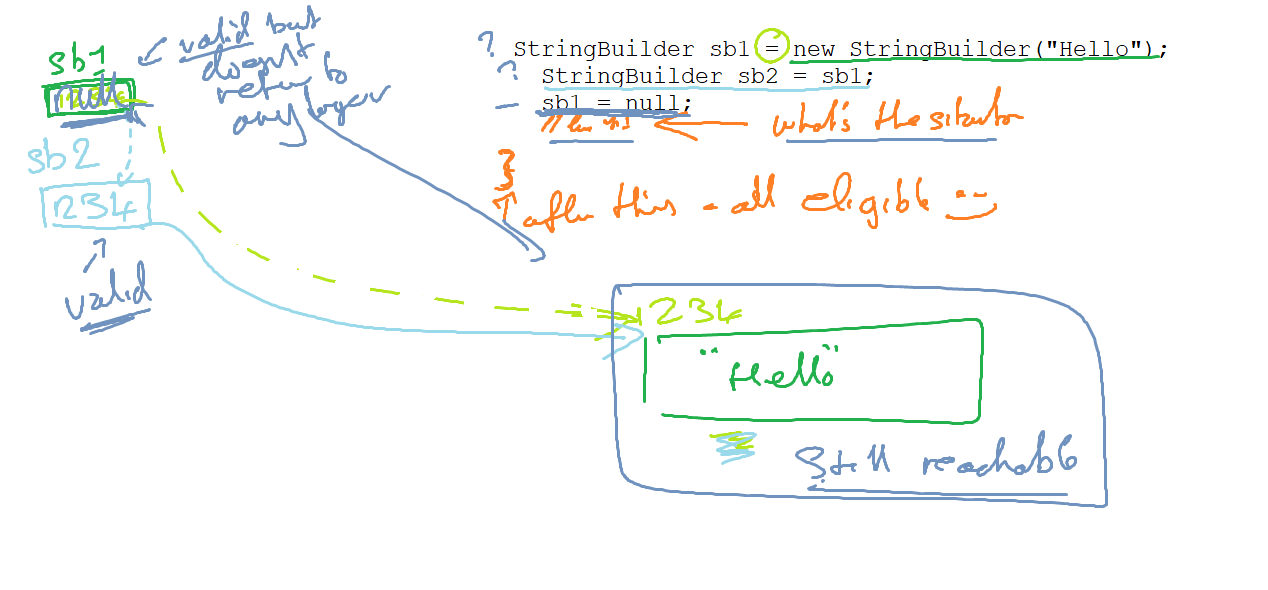 sb1
null
valid but
doesn't
refer to
any longer
sb2
1234
valid
? StringBuilder sb1 = new StringBuilder("Hello");
? StringBuilder sb2 = sb1;
– sb1 = null;
// ← what's the
}
↑ after this - all eligible
1234
"Hello"
Still reachable